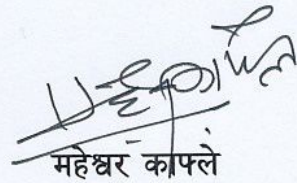 महेश्वर काफ्ले